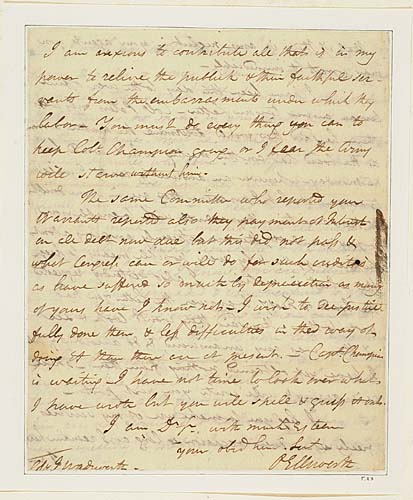 I am anxious to contribute all that is in my
power to relieve the publick & their faithful ser
vants from the embarrasments under which they
labor – You must do every thing you can to
keep Colo. Champion going or I fear the Army
will starve without him.
The same Committee who reported your
Warrants reported also the payment of Interest
on all debt now due but this did not pass &
what Congress can or will do for such creditors
as have suffered so much by depreciation as many
of yours have I know not – I wish to see justice
fully done them & less difficulties in the way of
doing it than there are at present. – Capt. Champion
is waiting – I have not time to look over what
I have wrote but you will spell & guess it out.
I am Dr. Sr. with much Esteem
your obed. hum. Sert
O Ellsworth
Wadsworth.